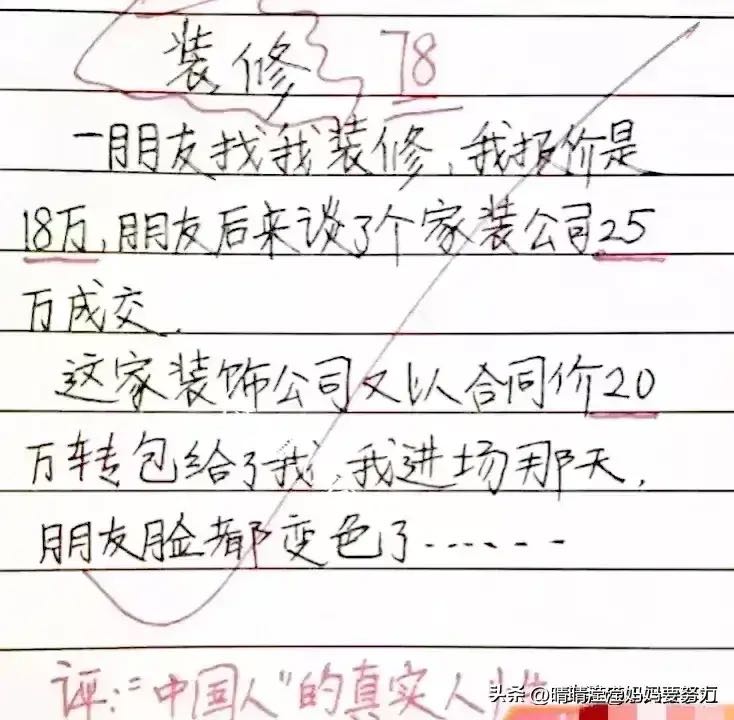 装修 78
一朋友找我装修,我报价是
18万,朋友后来谈了个家装公司25
万成交.
这家装饰公司又以合同价20
万转包给了我 我进场那天,
朋友脸都变色了......
评:“中国人”的真实人性
头条 @晴晴滢滢妈妈要努力